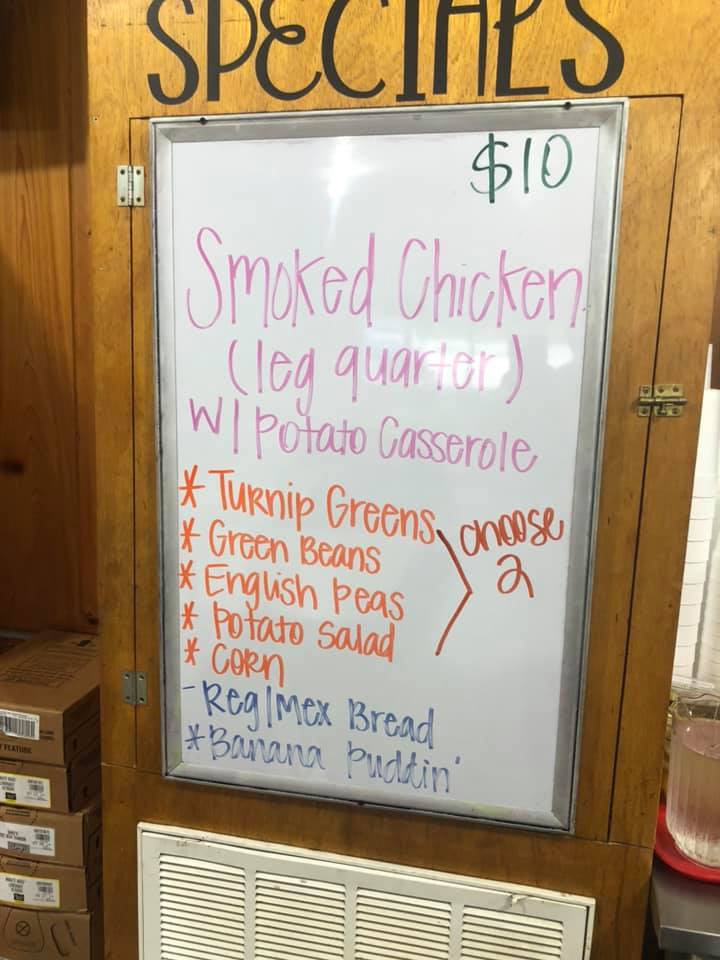 SPECIALS
$10
Smoked Chicken
(leg quarter)
W/ Potato Casserole
* Turnip Greens
* Green Beans
* English Peas
* Potato Salad
* Corn
choose
2
- Reg/Mex Bread
* Banana Puddin'